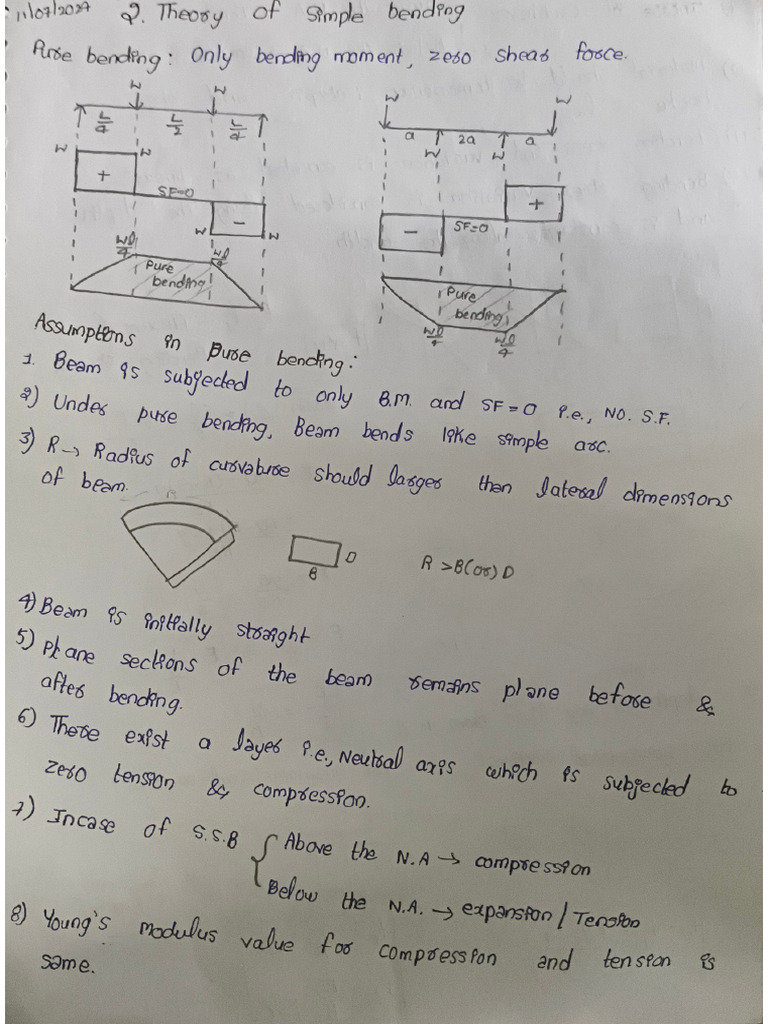 11/07/2027 2. Theory of Simple bending
Pure bending: Only bending moment, zero shear force.
W W W W
L/4 L/2 L/4 a 2a a
W W W W
+ SF=0 - SF=0 +
W W -
Wl/4 Wl/4
Pure bending Pure bending
Wl/4 Wl/4
Assumptions in Pure bending:
1. Beam is subjected to only B.M. and SF=0 i.e., NO. S.F.
2) Under pure bending, Beam bends like simple arc.
3) R → Radius of curvature should larger then lateral dimensions
of beam.
B D R >B(or) D
4) Beam is initially straight
5) Plane sections of the beam remains plane before &
after bending.
6) There exist a layer i.e., Neutral axis which is subjected to
zero tension & compression.
7) Incase of S.S.B { Above the N.A → compression
Below the N.A. → expansion / Tension
8) Young's modulus value for compression and tension is
same.